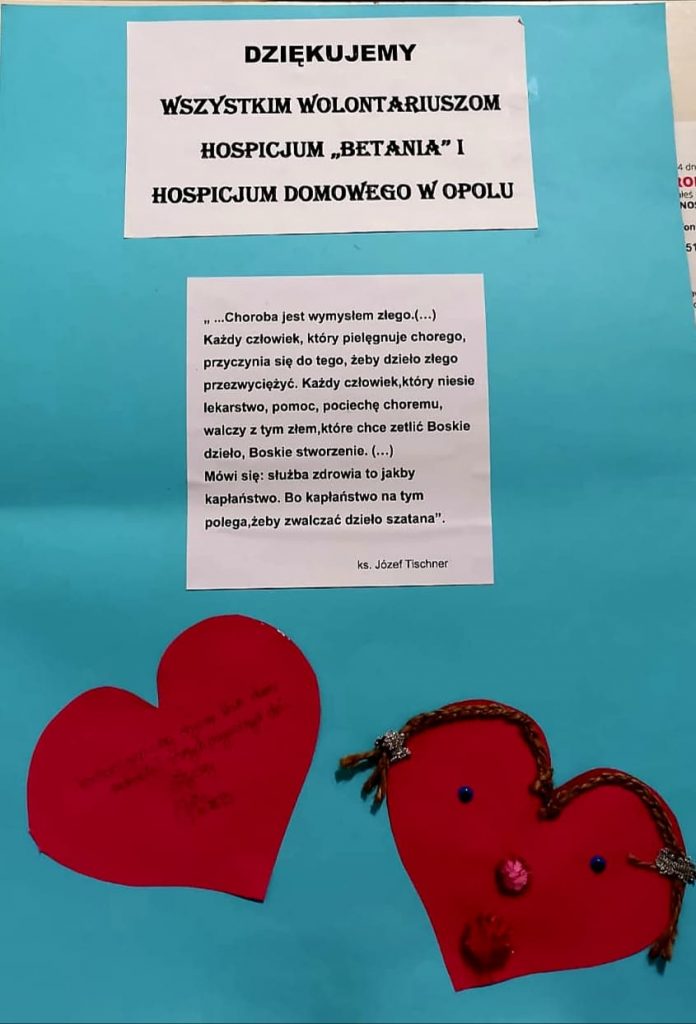 DZIĘKUJEMY
WSZYSTKIM WOLONTARIUSZOM
HOSPICJUM „BETANIA” I
HOSPICJUM DOMOWEGO W OPOLU
„ ...Choroba jest wymysłem złego.(...)
Każdy człowiek, który pielęgnuje chorego,
przyczynia się do tego, żeby dzieło złego
przezwyciężyć. Każdy człowiek,który niesie
lekarstwo, pomoc, pociechę choremu,
walczy z tym złem,które chce zetlić Boskie
dzieło, Boskie stworzenie. (...)
Mówi się: służba zdrowia to jakby
kapłaństwo. Bo kapłaństwo na tym
polega,żeby zwalczać dzieło szatana”.
ks. Józef Tischner
4 dn
51